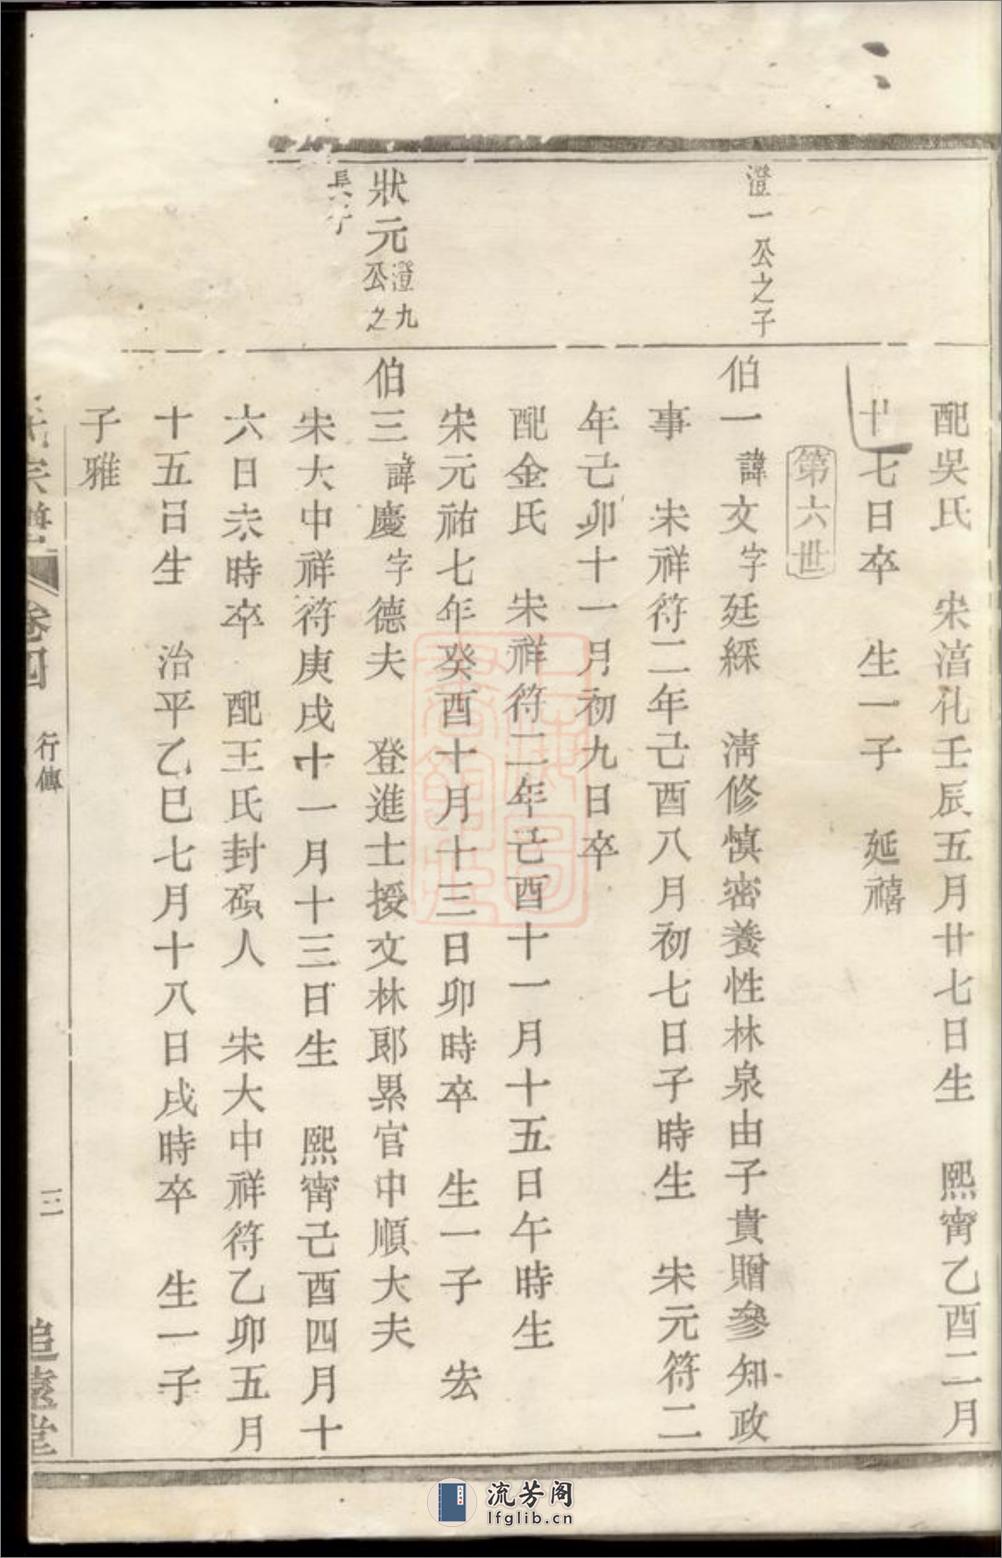 配吳氏　宋湻礼壬辰五月廿七日生　熙甯乙酉二月
廿七日卒　生一子　延禧
第六世
澄一公之子
伯一諱文字廷綵　淸修慎密養性林泉由子貴贈參知政
事　宋祥符二年己酉八月初七日子時生　宋元符二
年己卯十一月初九日卒
配金氏　宋祥符二年己酉十一月十五日午時生
宋元祐七年癸酉十月十三日卯時卒　生一子　宏
狀元澄九公之
長子
伯三諱慶字德夫　登進士授文林郞累官中順大夫
宋大中祥符庚戌十一月十三日生　熙甯己酉四月十
六日未時卒　配王氏封碩人　宋大中祥符乙卯五月
十五日生　治平乙巳七月十八日戌時卒　生一子
子雅
氏宗譜　卷四　行傳　三　追遠堂
流芳阁
lfglib.cn